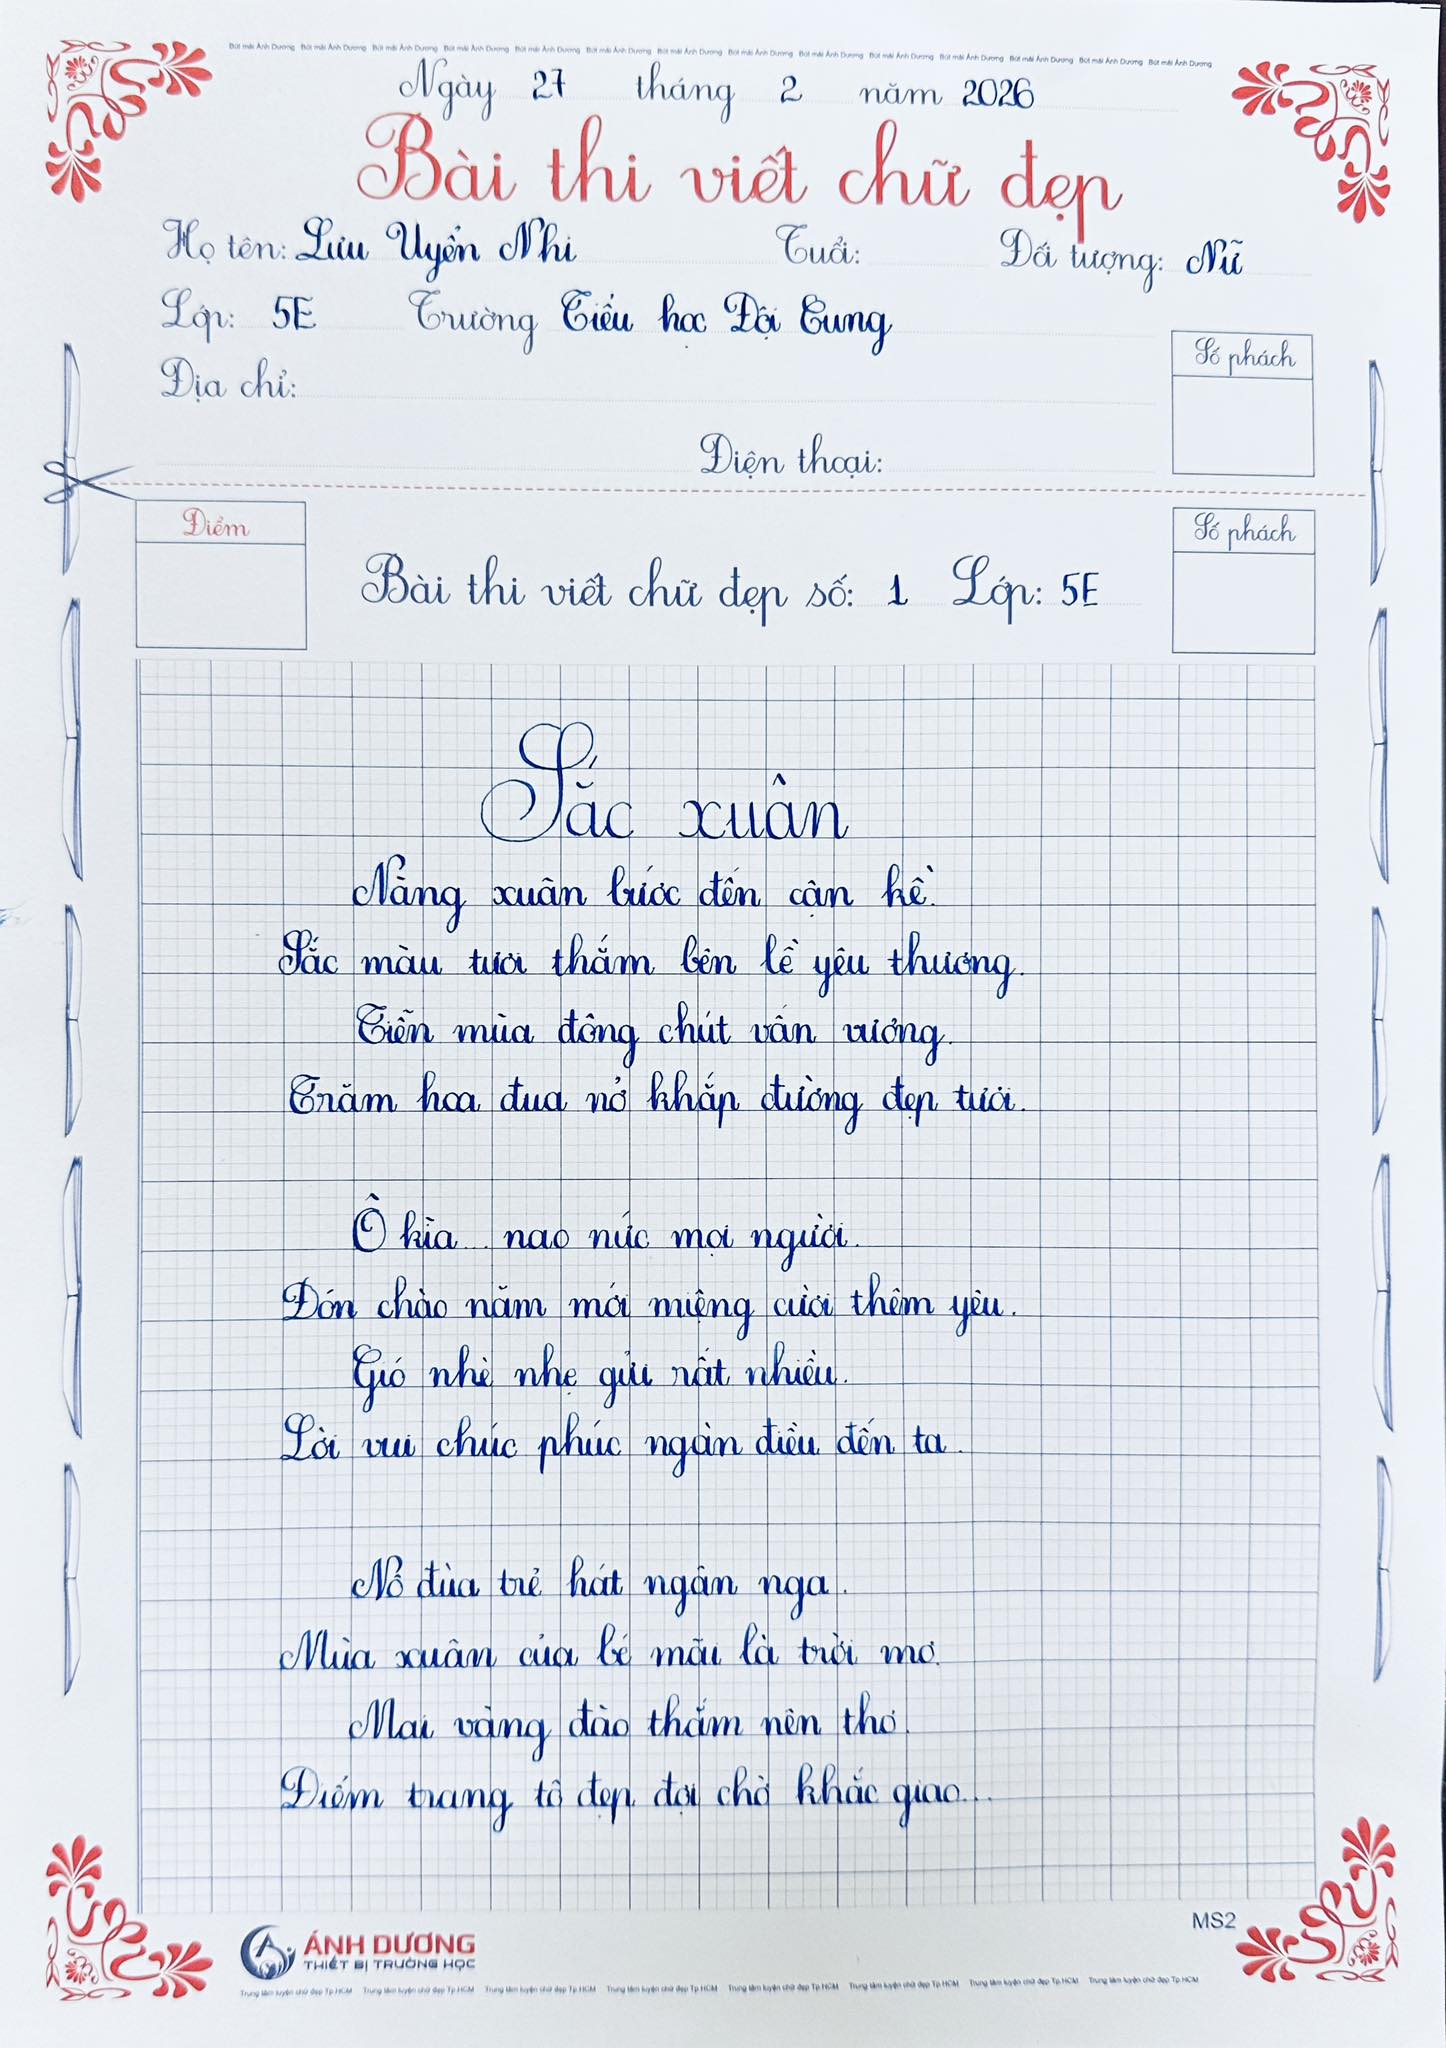 Bút mài Ánh Dương Bút mài Ánh Dương Bút mài Ánh Dương Bút mài Ánh Dương Bút mài Ánh Dương Bút mài Ánh Dương Bút mài Ánh Dương Bút mài Ánh Dương Bút mài Ánh Dương Bút mài Ánh Dương Bút mài Ánh Dương Bút mài Ánh Dương Bút mài Ánh Dương Bút mài Ánh Dương
Ngày 27 tháng 2 năm 2026
Bài thi viết chữ đẹp
Họ tên: Lưu Uyển Nhi Tuổi: Đối tượng: Nữ
Lớp: 5E Trường Tiểu học Đội Cung
Số phách
Địa chỉ:
Điện thoại:
Điểm
Số phách
Bài thi viết chữ đẹp số: 1 Lớp: 5E
Sắc xuân
Nàng xuân bước đến cận kề.
Sắc màu tươi thắm bên lề yêu thương.
Tiễn mùa đông chút vấn vương.
Trăm hoa đua nở khắp đường đẹp tươi.
Ô kìa... nao nức mọi người.
Đón chào năm mới miệng cười thêm yêu.
Gió nhè nhẹ gửi rất nhiều.
Lời vui chúc phúc ngàn điều đến ta.
Nô đùa trẻ hát ngân nga.
Mùa xuân của bé mãi là trời mơ.
Mai vàng đào thắm nên thơ.
Điểm trang tô đẹp đợi chờ khắc giao...
MS2
ÁNH DƯƠNG
THIẾT BỊ TRƯỜNG HỌC
Trung tâm luyện chữ đẹp Tp.HCM Trung tâm luyện chữ đẹp Tp.HCM Trung tâm luyện chữ đẹp Tp.HCM Trung tâm luyện chữ đẹp Tp.HCM Trung tâm luyện chữ đẹp Tp.HCM Trung tâm luyện chữ đẹp Tp.HCM Trung tâm luyện chữ đẹp Tp.HCM Trung tâm luyện chữ đẹp Tp.HCM